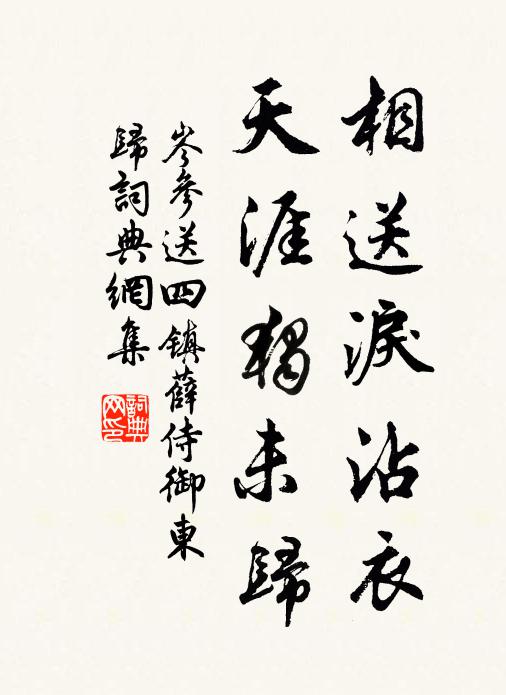 相送淚沾衣
天涯獨未歸
岑參送四鎮薛侍御東
歸詞典網集
詞典
网印